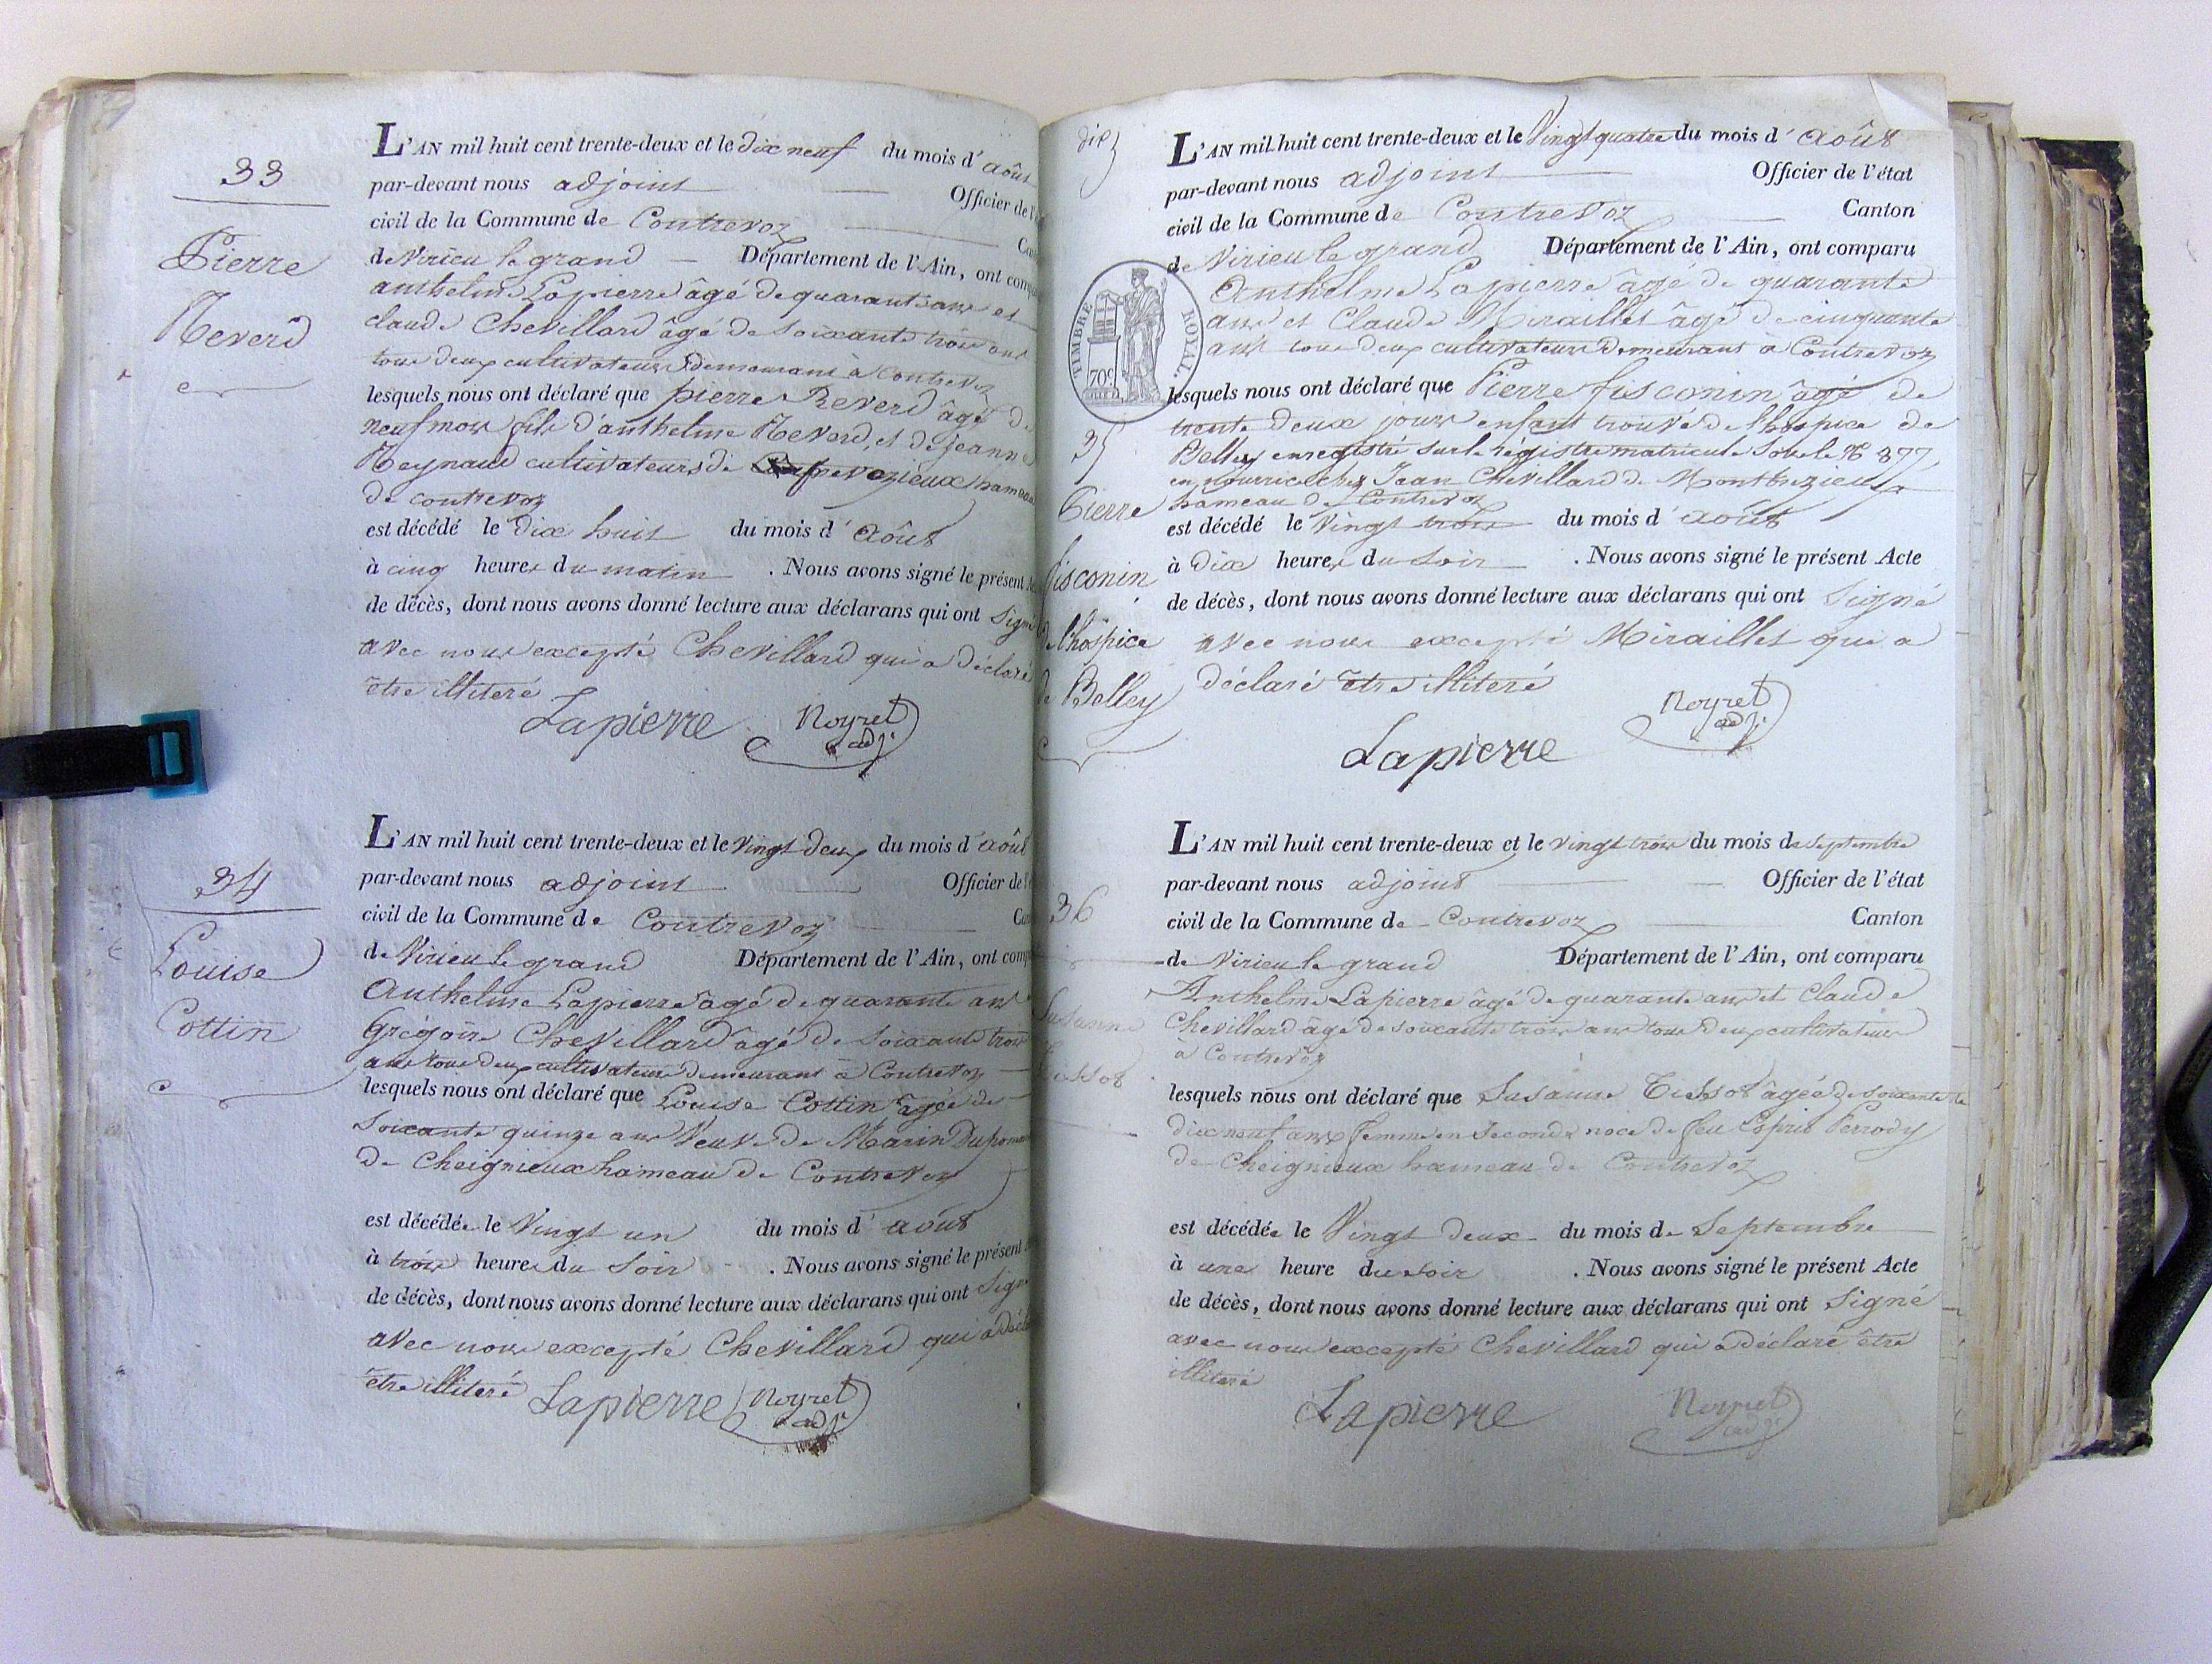 33
Pierre
Reverd
L'AN mil huit cent trente-deux et le dix neuf du mois d'août
par-devant nous adjoint Officier de l'
civil de la Commune de Contrevoz
de Virieu le grand Département de l'Ain, ont comp
anthelme Lapierre âgé de quarante ans et
claude Chevillard âgé de soixante trois ans
tous deux cultivateurs demeurant à Contrevoz
lesquels nous ont déclaré que pierre Reverd âgé de
neuf mois fils d'anthelme Reverd, et de Jeanne
Reynaud cultivateurs de hameau
de contrevoz
est décédé le dix huit du mois d'août
à cinq heures du matin . Nous avons signé le présent
de décès, dont nous avons donné lecture aux déclarans qui ont signé
avec nous excepté Chevillard qui a déclaré
être illiteré
Lapierre Noyret
adjt
34
Louise
Cottin
L'AN mil huit cent trente-deux et le vingt deux du mois d'août
par-devant nous adjoint Officier de l'
civil de la Commune de Contrevoz
de Virieu le grand Département de l'Ain, ont comp
Anthelme Lapierre âgé de quarante ans
Grégoire Chevillard âgé de soixante trois
ans tous deux cultivateurs demeurant à Contrevoz
lesquels nous ont déclaré que Louise Cottin âgée de
soixante quinze ans Veuve de Marin
de Cheignieux hameau de Contrevoz
est décédée le Vingt un du mois d'août
à trois heures du soir . Nous avons signé le présent
de décès, dont nous avons donné lecture aux déclarans qui ont signé
avec nous excepté Chevillard qui a décl
être illiteré Lapierre Noyret
adjt
L'AN mil huit cent trente-deux et le Vingt quatre du mois d'août
par-devant nous adjoint Officier de l'état
civil de la Commune de Contrevoz Canton
de Virieu le grand Département de l'Ain, ont comparu
TIMBRE ROYAL.
70c
Anthelme Lapierre âgé de quarante
ans et Claude Miraillet âgé de cinquante
ans tous deux cultivateurs demeurant à Contrevoz
lesquels nous ont déclaré que Pierre fisconin âgé de
trente deux jours enfant trouvé de l'hospice de
Belley enregistré sur le régistre matricule sous le N° 877
en nourrice chez Jean Chevillard de Montbrezieux
hameau de Contrevoz
35
Pierre
fisconin
de l'hospice
de Belley
est décédé le Vingt trois du mois d'août
à dix heures du soir . Nous avons signé le présent Acte
de décès, dont nous avons donné lecture aux déclarans qui ont signé
avec nous excepté Miraillet qui a
déclaré être illiteré
Noyret
adjt
Lapierre
36
Susanne
Tissot
L'AN mil huit cent trente-deux et le vingt trois du mois de septembre
par-devant nous adjoint Officier de l'état
civil de la Commune de Contrevoz Canton
de Virieu le grand Département de l'Ain, ont comparu
Anthelme Lapierre âgé de quarante ans et Claude
Chevillard âgé de soixante trois ans tous deux cultivateurs
à Contrevoz
lesquels nous ont déclaré que Susanne Tissot âgée de soixante
dix neuf ans femme en seconde noce de feu Esprit Perrody
de Cheignieux hameau de Contrevoz
est décédée le Vingt deux du mois de Septembre
à une heure du soir . Nous avons signé le présent Acte
de décès, dont nous avons donné lecture aux déclarans qui ont signé
avec nous excepté Chevillard qui a déclaré être
illiteré
Lapierre Noyret
adjt